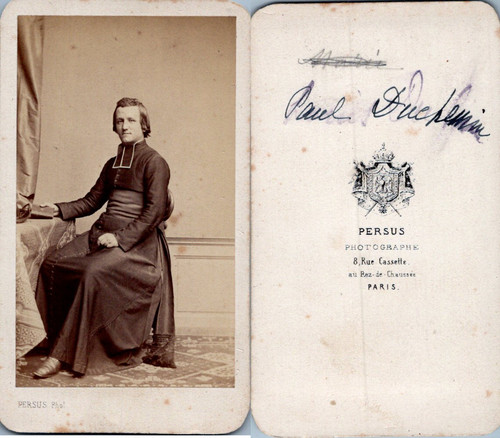 PERSUS Phot
Paul Duchemin
PERSUS
PHOTOGRAPHE
8, Rue Cassette.
au Rez-de-Chaussée
PARIS.